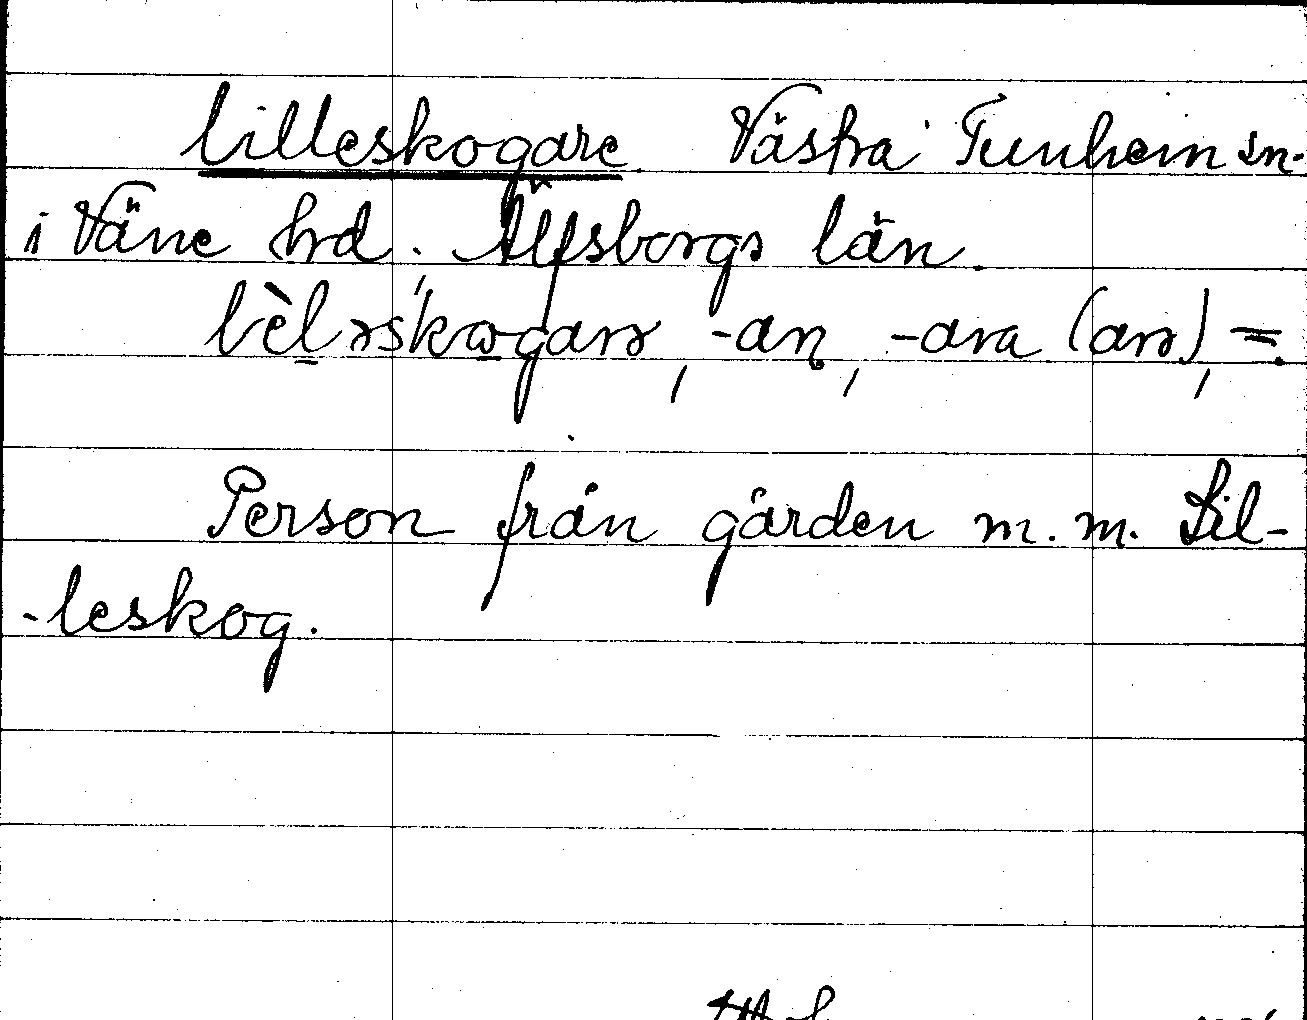 lilleskogare Västra Tunhem sn.
i Väne hrd. Älfsborgs län.
-an, -ara
Person från gården m.m. Lil-
-leskog.